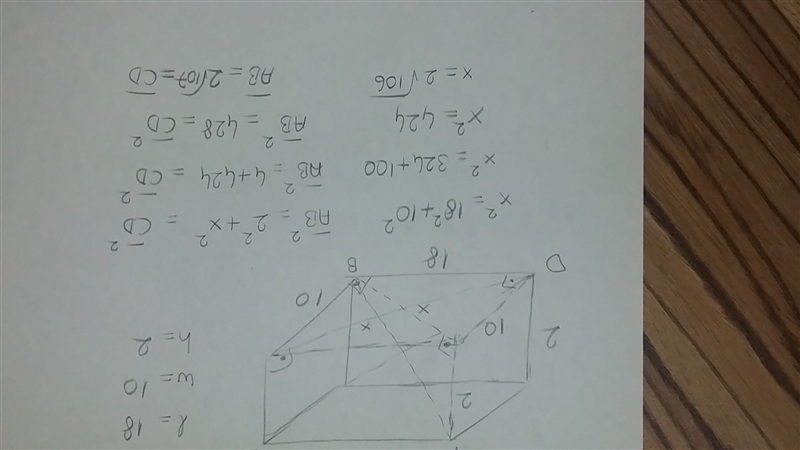 l = 18
w = 10
h = 2
2
2
10
x
x
10
D
18
B
x² = 18² + 10²
x² = 324 + 100
x² = 424
x = 2√106
A̅B̅² = 2² + x² = C̅D̅²
A̅B̅² = 4 + 424 = C̅D̅²
A̅B̅² = 428 = C̅D̅²
A̅B̅ = 2√107 = C̅D̅